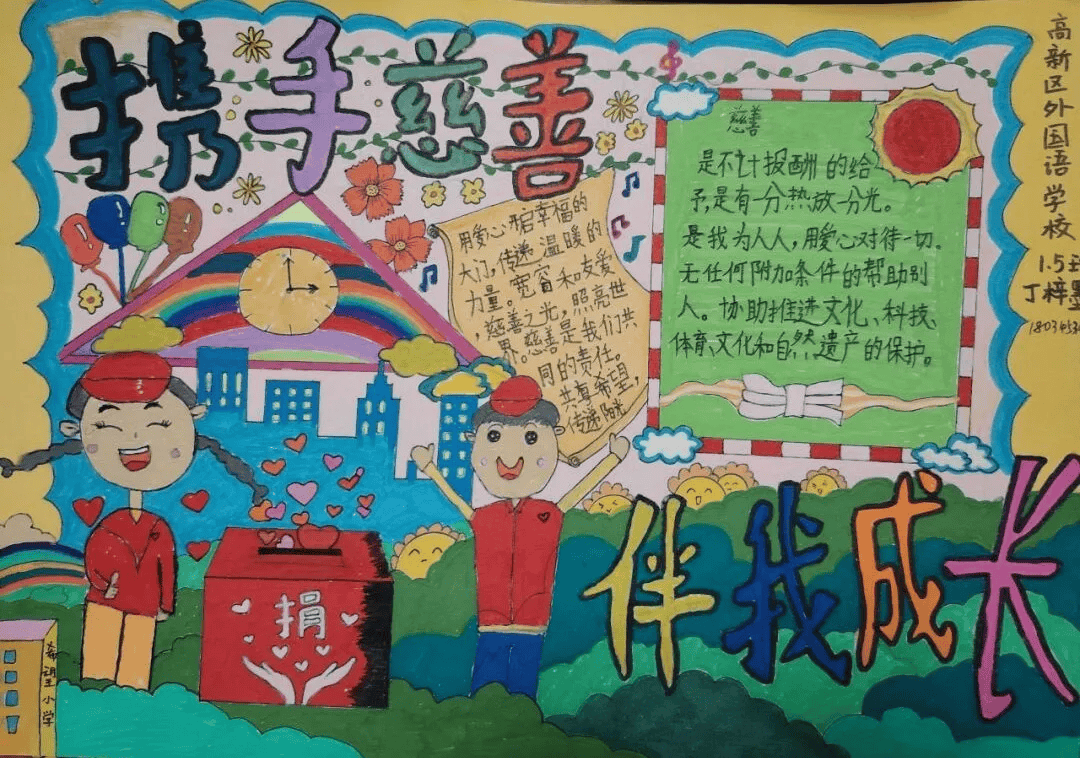 携手慈善
用爱心开启幸福的
大门,传递温暖的
力量。宽容和友爱
,慈善之光,照亮世
界。慈善是我们共
同的责任。
共享希望,
传递阳光
慈善
是不计报酬的给
予,是有一分热放一分光。
是我为人人,用爱心对待一切。
无任何附加条件的帮助别
人。协助推进文化、科技、
体育、文化和自然遗产的保护。
高新区外国语学校
1.5班
丁梓墨
捐
希望小学
伴我成长